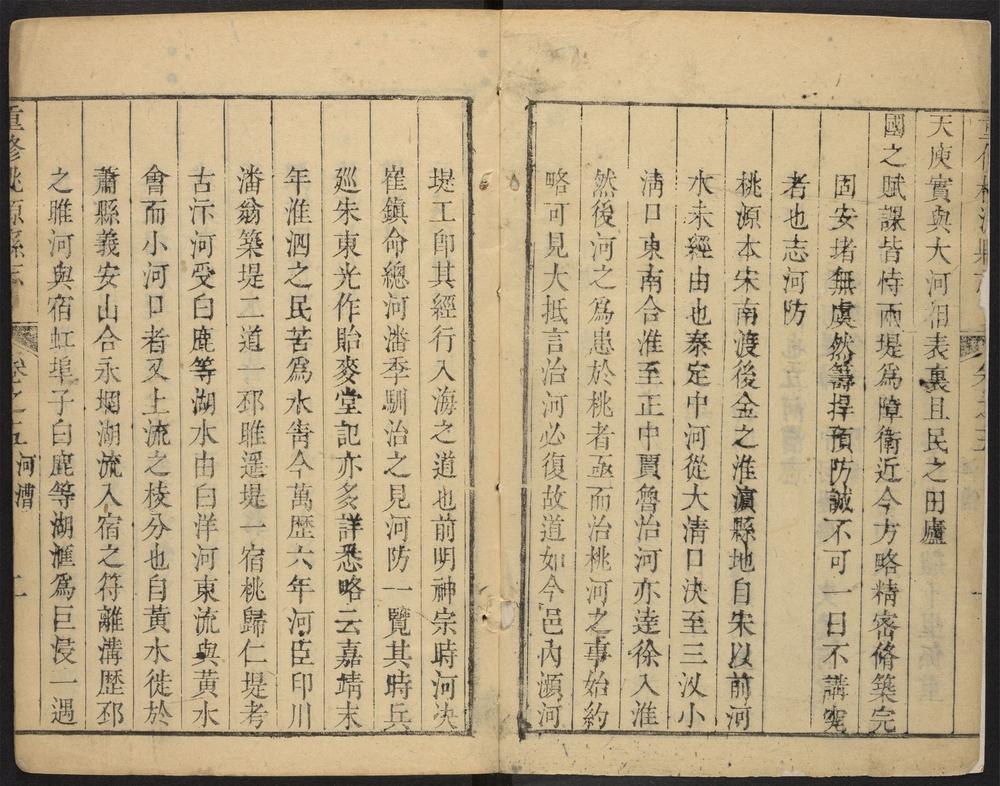 天庾實與大河相表裏且民之田廬
國之賦課皆恃兩堤爲障衛近今方略精密脩築完
固安堵無虞然籌捍預防誠不可一日不講究
者也志河防
桃源本宋南渡後金之淮濵縣地自宋以前河
水未經由也泰定中河從大淸口決至三汊小
淸口東南合淮至正中賈魯治河亦逹徐入淮
然後河之爲患於桃者亟而治桃河之事始約
略可見大抵言治河必復故道如今邑內瀕河
堤工卽其經行入海之道也前明神宗時河決
崔鎮命總河潘季馴治之見河防一覽其時兵
廵朱東光作貽麥堂記亦多詳悉略云嘉靖末
年淮泗之民苦爲水靑今萬歷六年河臣印川
潘翁築堤二道一邳睢遥堤一宿桃歸仁堤考
古汴河受白鹿等湖水由白洋河東流與黃水
會而小河口者又上流之枝分也自黃水徙於
蕭縣義安山合永堌湖流入宿之符離溝歷邳
之睢河與宿虹埠子白鹿等湖滙爲巨浸一遇
重修桃源縣志
卷之五
河漕
二